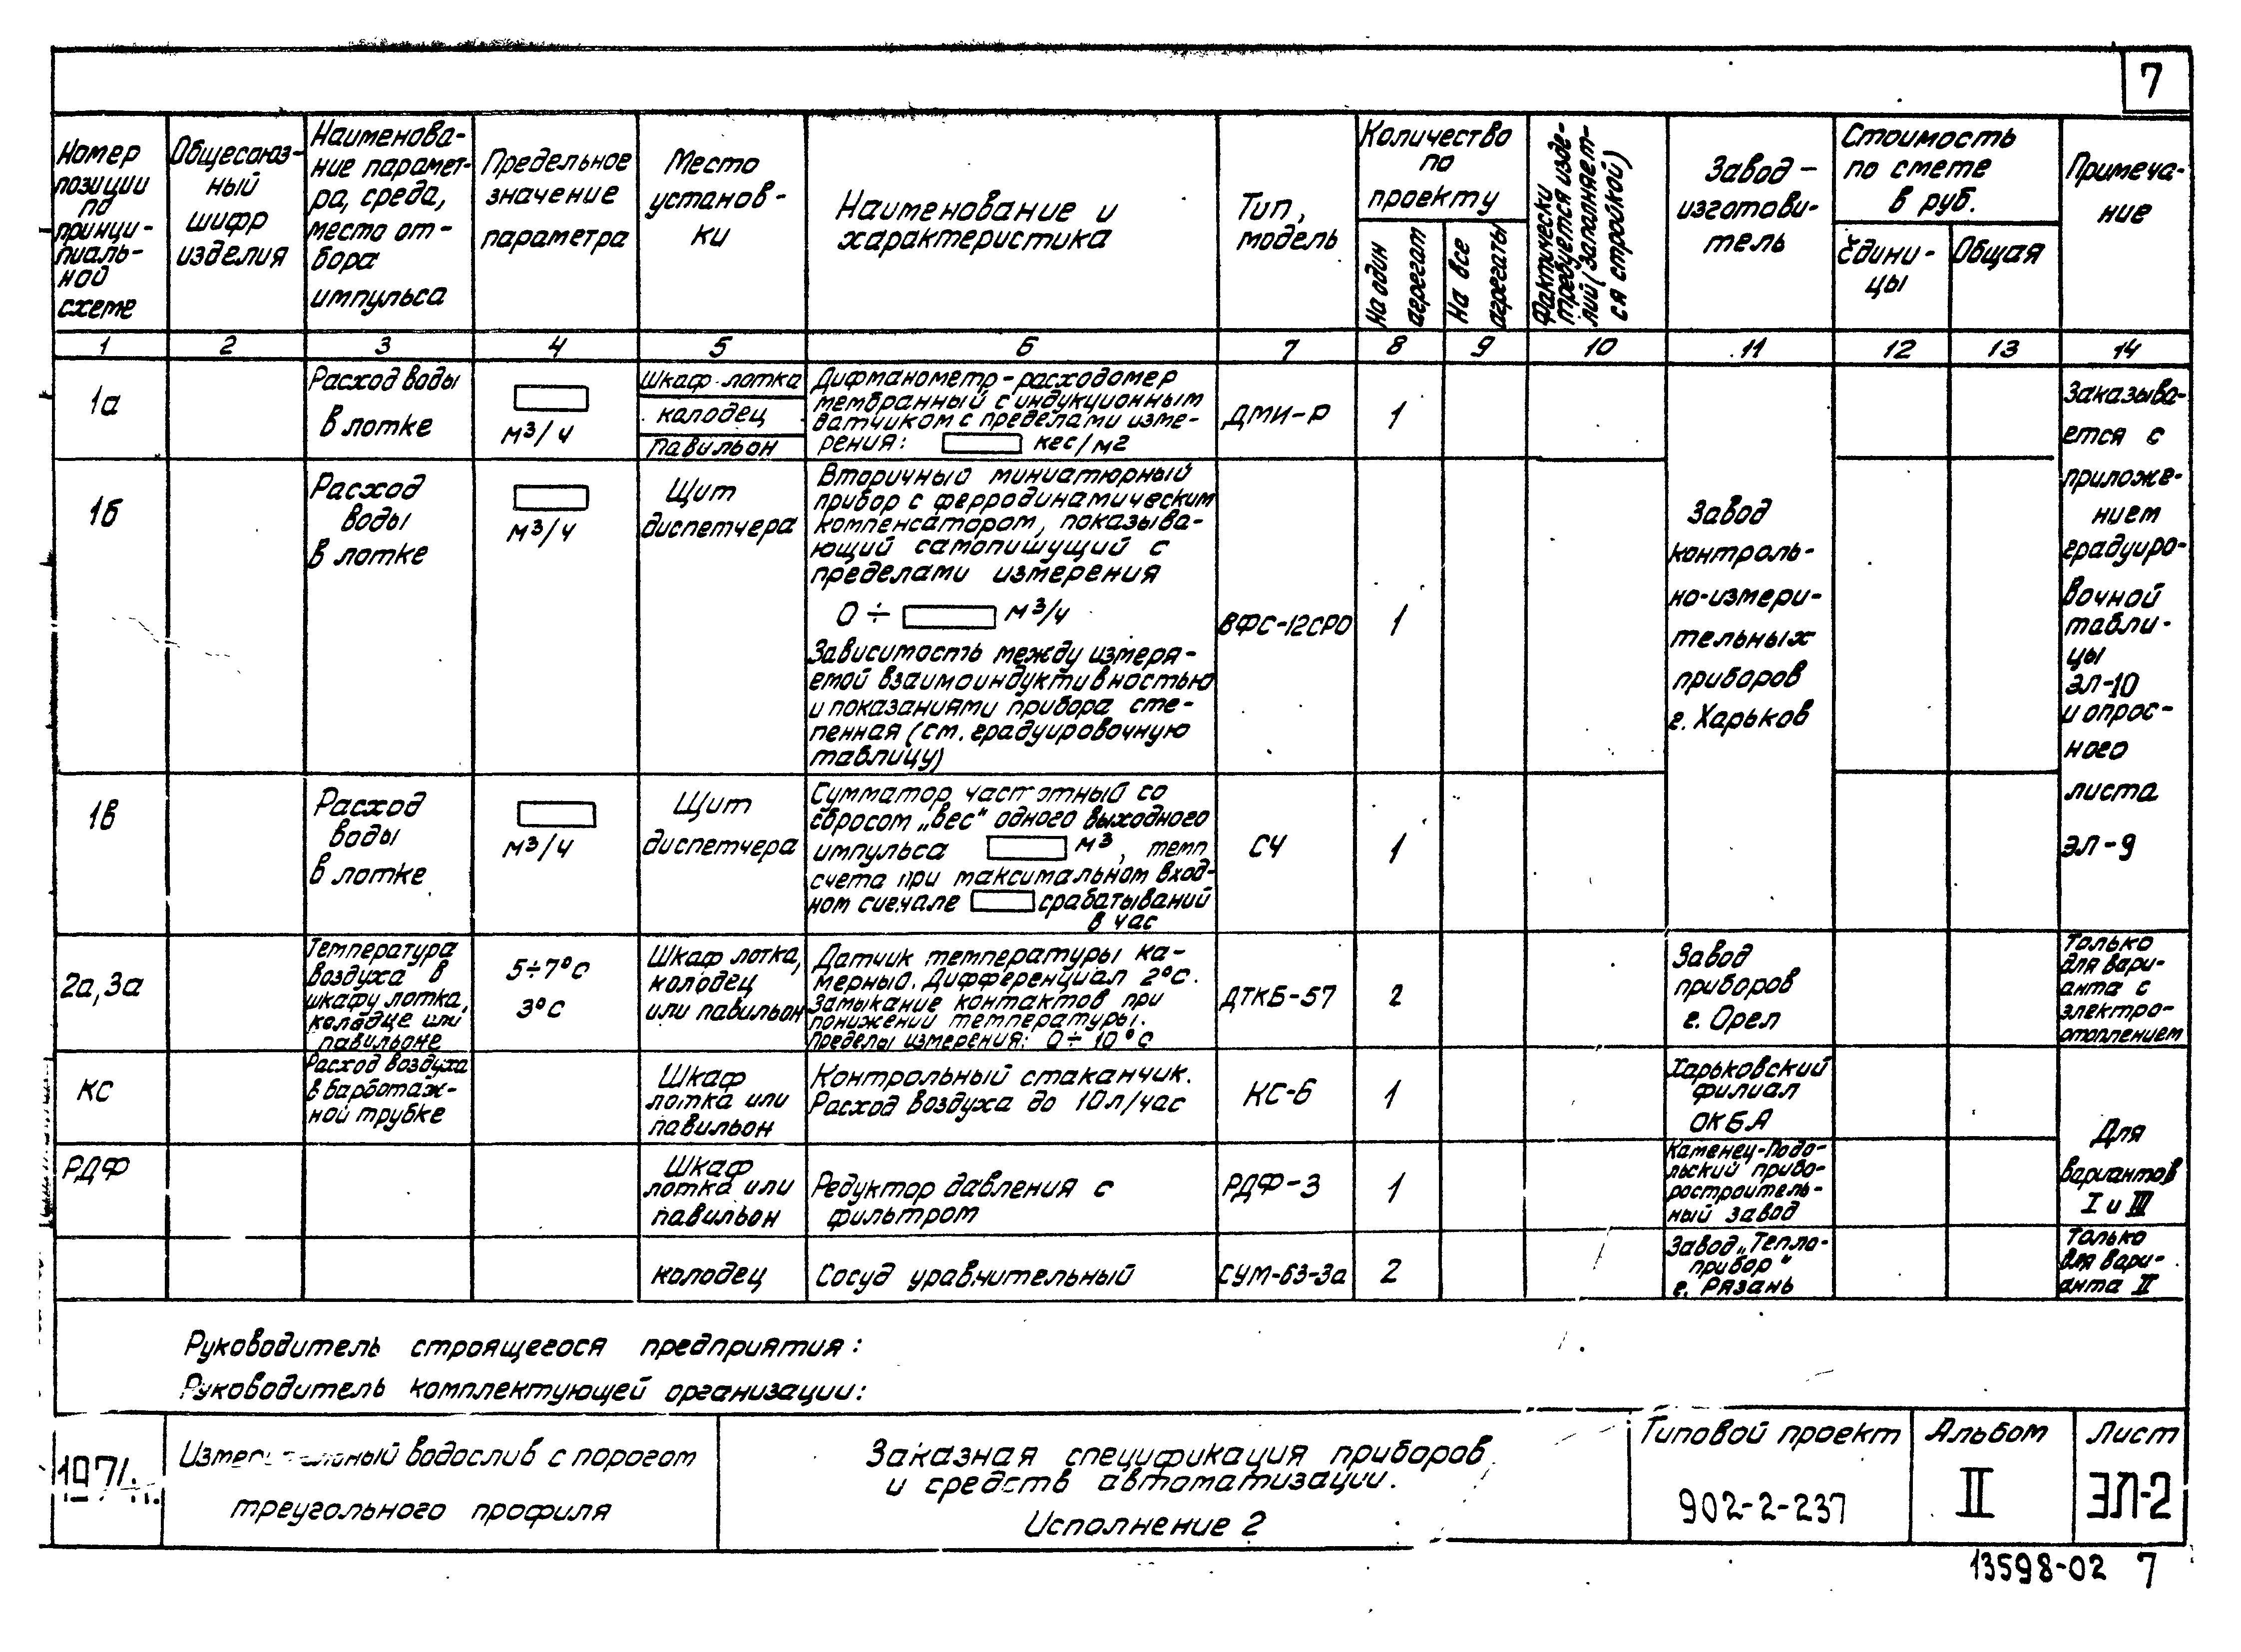 7
Номер
позиции
по
принци-
пиаль-
ной
схеме
Общесоюз-
ный
шифр
изделия
Наименова-
ние парамет-
ра, среда,
место от-
бора
импульса
Предельное
значение
параметра
Место
установ-
ки
Наименование и
характеристика
Тип,
модель
Количество
по
проекту
На один
агрегат
На все
агрегаты
Фактически
требуется изде-
лий (заполняет-
ся стройкой)
Завод-
изготови-
тель
Стоимость
по смете
в руб.
Едини-
цы
Общая
Примеча-
ние
1 2 3 4 5 6 7 8 9 10 11 12 13 14
1а
Расход воды
в лотке
м³/ч
Шкаф лотка
колодец
павильон
Дифманометр-расходомер
мембранный с индукционным
датчиком с пределами изме-
рения: кгс/м2
ДМИ-Р
1
1б
Расход
воды
в лотке
м³/ч
Щит
диспетчера
Вторичный миниатюрный
прибор с ферродинамическим
компенсатором, показыва-
ющий самопишущий с
пределами измерения
0 ÷ м³/ч
Зависимость между измеря-
емой взаимоиндуктивностью
и показаниями прибора сте-
пенная (см. градуировочную
таблицу)
ВФС-12СРО
1
Завод
контроль-
но-измери-
тельных
приборов
г. Харьков
Заказыва-
ется с
приложе-
нием
градуиро-
вочной
табли-
цы
ЭЛ-10
и опрос-
ного
листа
ЭЛ-9
1в
Расход
воды
в лотке
м³/ч
Щит
диспетчера
Сумматор частотный со
сбросом „вес" одного выходного
импульса м³, темп
счета при максимальном вход-
ном сигнале срабатываний
в час
СЧ
1
2а,3а
Температура
воздуха в
шкафу лотка,
колодце или
павильоне
5÷7°С
3°С
Шкаф лотка,
колодец
или павильон
Датчик температуры ка-
мерный. Дифференциал 2°С.
Замыкание контактов при
понижении температуры.
Пределы измерения: 0÷10°С
ДТКБ-57
2
Завод
приборов
г. Орел
Только
для вари-
анта с
электро-
отоплением
КС
Расход воздуха
в барботаж-
ной трубке
Шкаф
лотка или
павильон
Контрольный стаканчик.
Расход воздуха до 10л/час
КС-6
1
Харьковский
филиал
ОКБА
РДФ
Шкаф
лотка или
павильон
Редуктор давления с
фильтром
РДФ-3
1
Каменец-Подо-
льский прибо-
ростроитель-
ный завод
Для
вариантов
I и III
колодец
Сосуд уравнительный
СУМ-63-3а
2
Завод „Тепло-
прибор"
г. Рязань
Только
для вари-
анта II
Руководитель строящегося предприятия:
Руководитель комплектующей организации:
Измерительный водослив с порогом
треугольного профиля
Заказная спецификация приборов
и средств автоматизации.
Исполнение 2
Типовой проект
902-2-237
Альбом
II
Лист
ЭЛ-2
13598-02 7